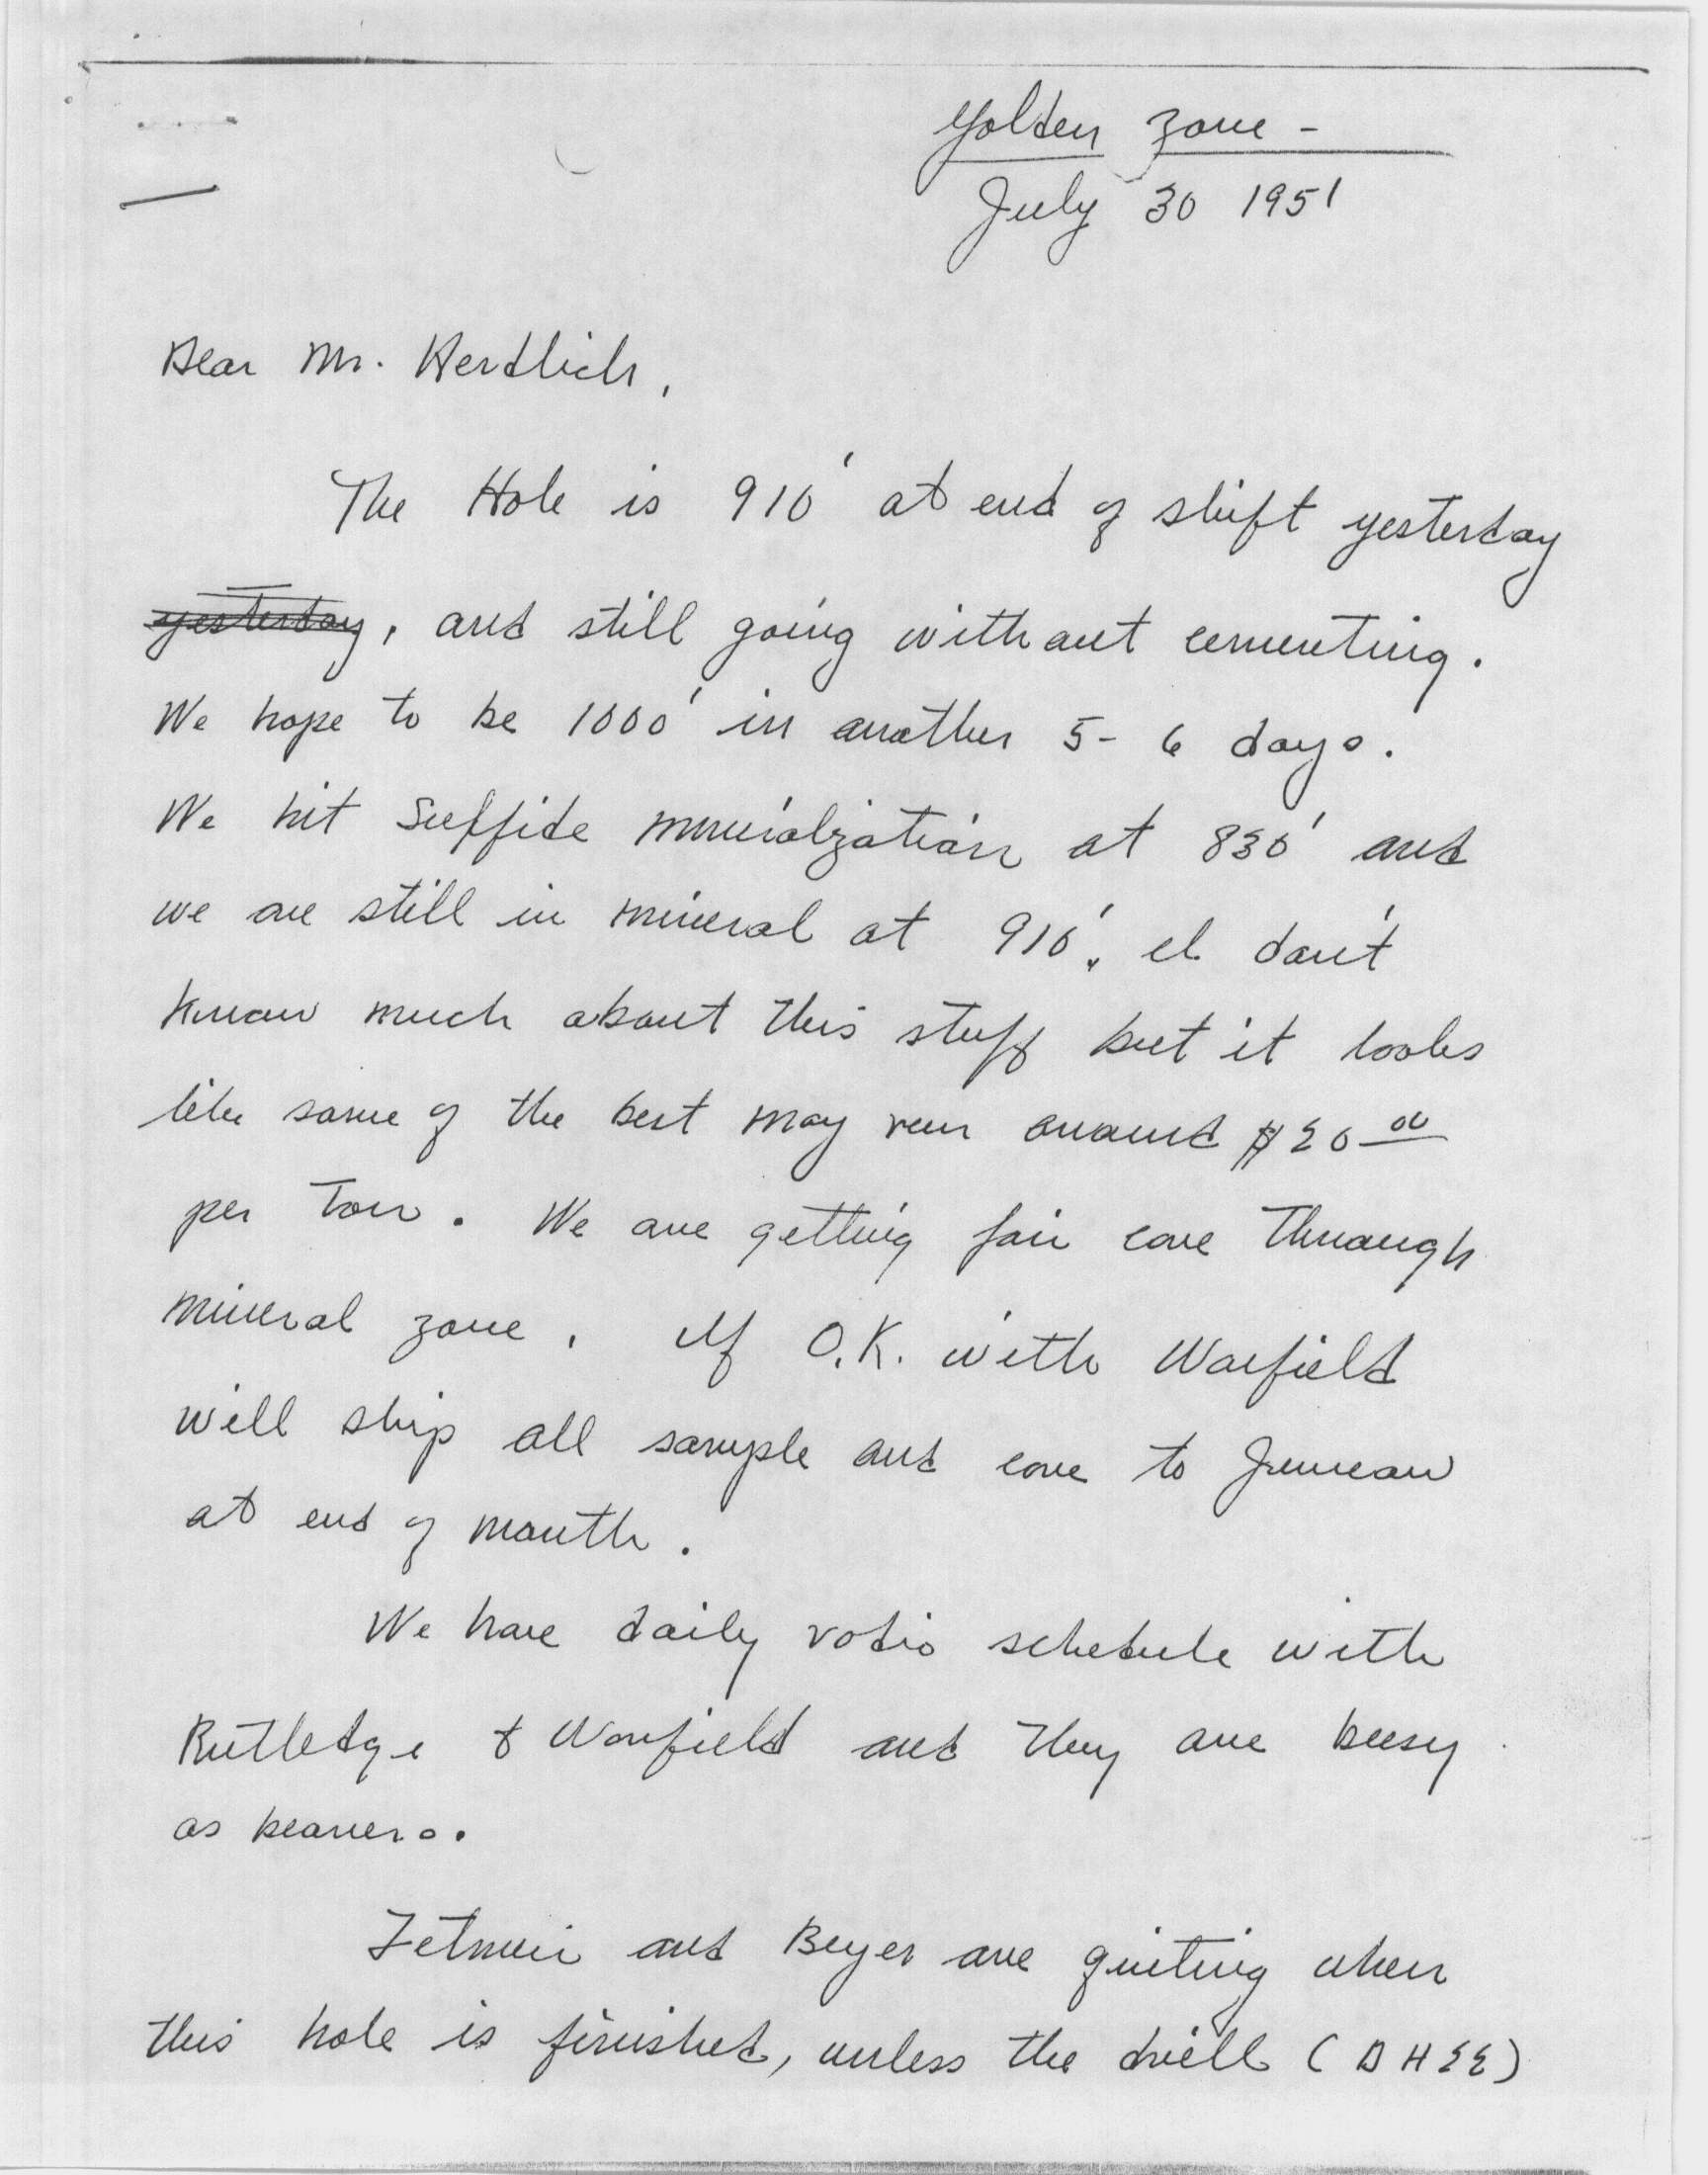 Golden Zone -
July 30 1951
Dear Mr. Herdlich,
The Hole is 910' at end of shift yesterday
yesterday, and still going without cementing.
We hope to be 1000' in another 5-6 days.
We hit Sulfide minerialzation at 830' and
we are still in mineral at 910'. I don't
know much about this stuff but it looks
like some of the best may run around $20 00
per ton. We are getting fair core through
mineral zone. If O.K. with Warfield
will ship all sample and core to Juneau
at end of month.
We have daily radio schedule with
Rutledge & Warfield and they are busy
as beavers.
and Beyer are quiting when
this hole is finished, unless the drill (DH22)